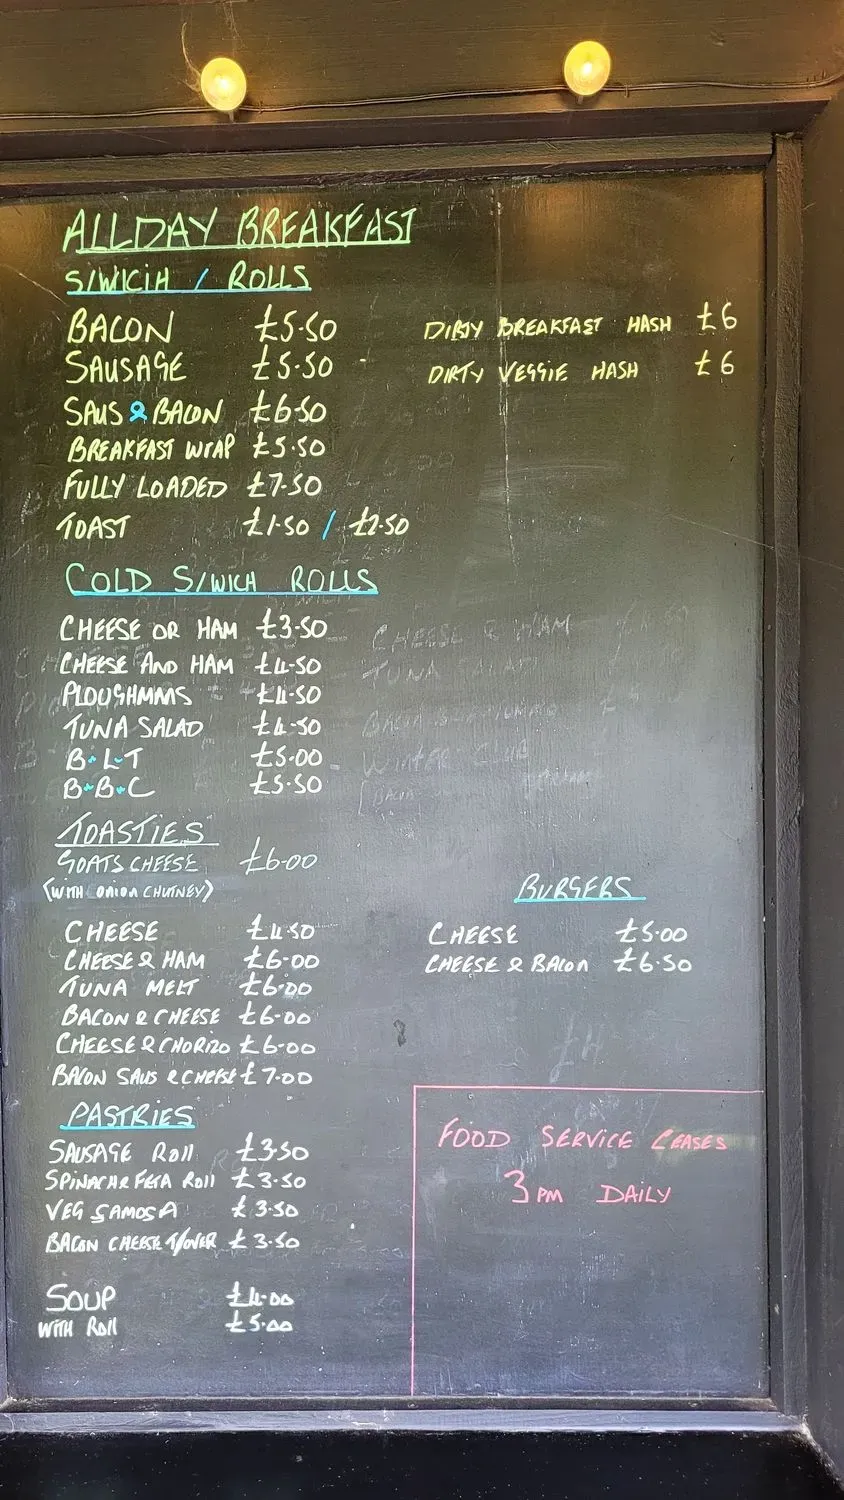 ALLDAY BREAKFAST
S/WICIH / ROLLS
BACON £5.50
SAUSAGE £5.50
SAUS & BACON £6.50
BREAKFAST WRAP £5.50
FULLY LOADED £7.50
TOAST £1.50 / £2.50
DIRTY BREAKFAST HASH £6
DIRTY VEGGIE HASH £6
COLD S/WICH ROLLS
CHEESE OR HAM £3.50
CHEESE AND HAM £4.50
PLOUGHMANS £4.50
TUNA SALAD £4.50
B.L.T £5.00
B.B.C £5.50
CHEESE & HAM
TUNA
TOASTIES
GOATS CHEESE £6.00
(WITH ONION CHUTNEY)
CHEESE £4.50
CHEESE & HAM £6.00
TUNA MELT £6.00
BACON & CHEESE £6.00
CHEESE & CHORIZO £6.00
BACON SAUS & CHEESE £7.00
BURGERS
CHEESE £5.00
CHEESE & BACON £6.50
PASTRIES
SAUSAGE ROLL £3.50
SPINACH & FETA ROLL £3.50
VEG SAMOSA £3.50
BACON CHEESE T/OVER £3.50
SOUP £4.00
WITH ROLL £5.00
FOOD SERVICE CEASES
3PM DAILY